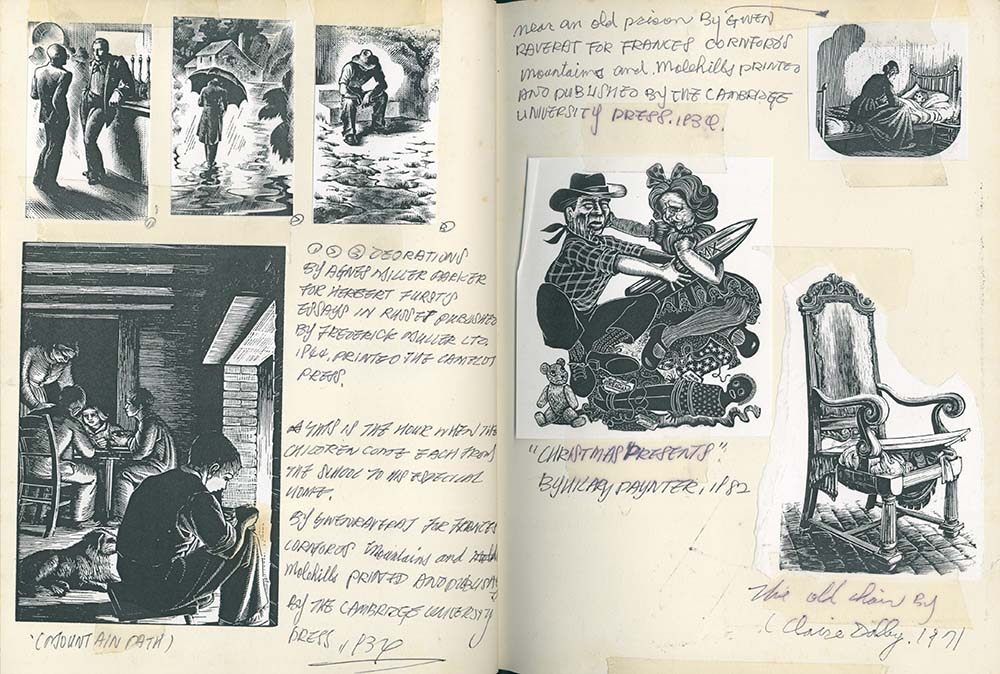 ① ② ③ DEORATIONS
BY AGNES MILLER PARKER
FOR HERBERT FURSTS
ESSAYS IN RUSSET PUBLISHED
BY FREDERICK MULLER LTD.
1944. PRINTED THE CAMELOT
PRESS.
THIS IS THE HOUR WHEN THE
CHILDREN COME EACH FROM
THE SCHOOL TO HIS ESPECIAL
HOME.
BY GWEN RAVERAT FOR FRANCES
CORNFORDS Mountains and
Molehills PRINTED AND PUBLISH
BY THE CAMBRIDGE UNIVERSITY
PRESS, 1934
(MOUNTAIN PATH)
near an old prison BY GWEN
RAVERAT FOR FRANCES CORNFORDS
Mountains and Molehills PRINTED
AND PUBLISHED BY THE CAMBRIDGE
UNIVERSITY PRESS. 1934.
"CHRISTMAS PRESENTS"
BY HILARY PAYNTER, 1982
The old chair By
(Claire Dalby. 1971